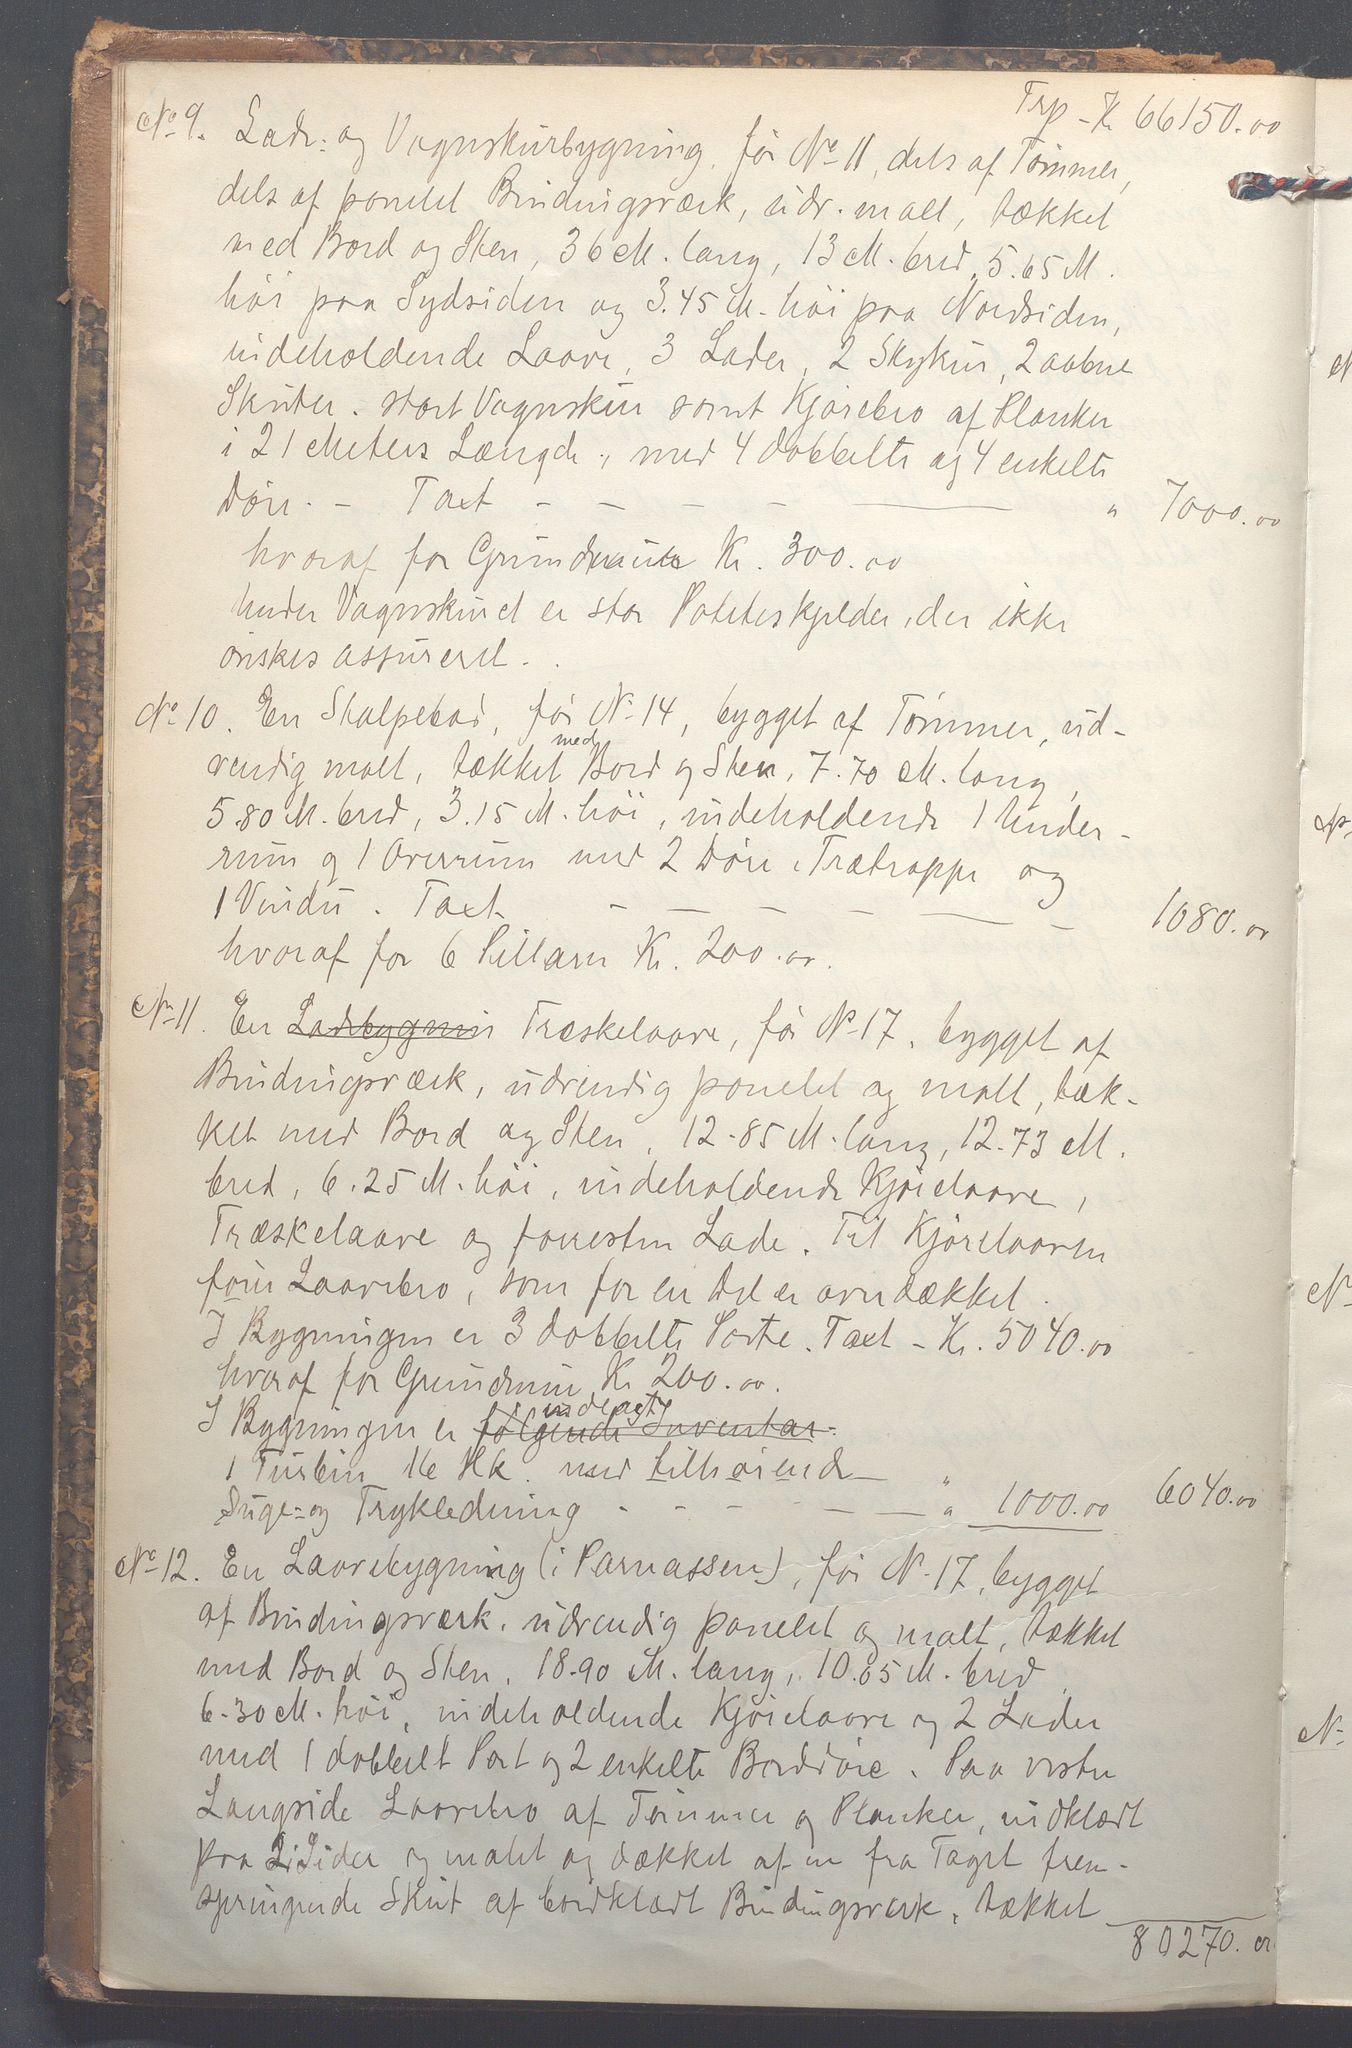 Trp - Kr. 66150.00
No 9. Lade- og Vognskurbygning, før No 11, dels af Tømmer,
dels af panelet Bindingsværk, udv. malt, tækket
med Bord og Sten, 36 M. lang, 13 M. bred, 5.65 M.
høi paa Sydsiden og 3.45 M. høi paa Nordsiden,
indeholdende Laave, 3 Lader, 2 Skykur, 2 aabne
Skuter, stort Vognskur samt Kjørebro af Planker
i 21 Meters Længde, med 4 dobbelte og 4 enkelte
Døre. - Taxt - - - - - " 7000.00
hvoraf for Grundmure Kr. 300.00
Under Vognskuret er stor Potetskjelder, der ikke
ønskes assureret.
No 10. En Stolpebod, før No 14, bygget af Tømmer, ud-
vendig malt, tækket med Bord og Sten, 7.70 M. lang,
5.80 M. bred, 3.15 M. høi, indeholdende 1 Under-
rum og 1 Overrum med 2 Døre, Trætrappe og
1 Vindu. Taxt - - - - - - 1080.00
hvoraf for 6 Pillarer Kr. 200.00.
No 11. En Ladebygnin Træskelaave, før No 17, bygget af
Bindingsværk, udvendig panelet og malt, tæk-
ket med Bord og Sten, 12.85 M. lang, 12.73 M.
bred, 6.25 M. høi, indeholdende Kjørelaave,
Træskelaave og forresten Lade. Til Kjørelaaven
fører Laavebro, som for en Del er overdækket.
I Bygningen er 3 dobbelte Porte. Taxt - Kr. 5040.00
hvoraf for Grundmur Kr 200.00.
I Bygningen er følgende Inventar indlagt
1 Turbin 16 Hk. med tilhørende "
Suge- og Trykledning - - - - - " 1000.00 6040.00
No 12. En Laavebygning (i Parnassen), før No 17, bygget
af Bindingsværk, udvendig panelet og malt, tækket
med Bord og Sten, 18.90 M. lang, 10.05 M. bred,
6.30 M. høi, indeholdende Kjørelaave og 2 Lader
med 1 dobbelt Port og 2 enkelte Borddøre. Paa vestre
Langside Laavebro af Tømmer og Planker, indklædt
paa 2 Sider og malet og dækket af en fra Taget frem-
springende Skut af bordklædt Bindingsværk, tækket
80270.00